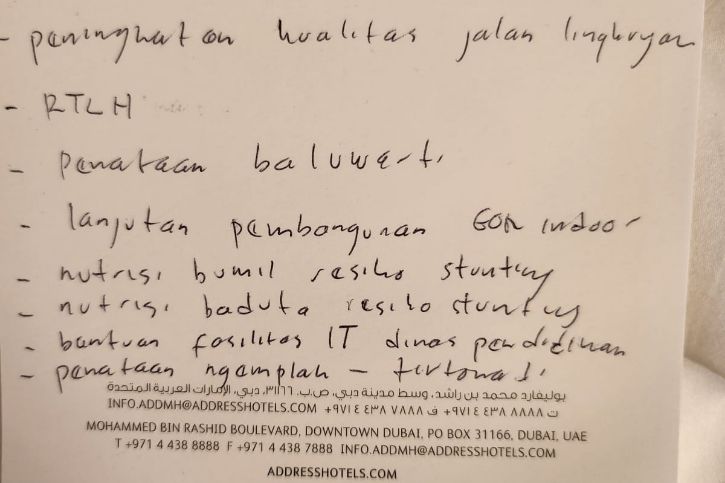 - peningkatan kualitas jalan lingkungan
- RTLH
- penataan baluwarti
- lanjutan pembangunan GOR indoor
- nutrisi bumil resiko stunting
- nutrisi baduta resiko stunting
- bantuan fasilitas IT dinas pendidikan
- penataan ngamplah - tirtonadi
بوليفارد محمد بن راشد، وسط مدينة دبي، ص.ب. ٣١١٦٦، دبي، الإمارات العربية المتحدة
ت ٨٨٨٨ ٤٣٨ ٤ ٩٧١+ ف ٧٨٨٨ ٤٣٨ ٤ ٩٧١+ INFO.ADDMH@ADDRESSHOTELS.COM
MOHAMMED BIN RASHID BOULEVARD, DOWNTOWN DUBAI, PO BOX 31166, DUBAI, UAE
T +971 4 438 8888 F +971 4 438 7888 INFO.ADDMH@ADDRESSHOTELS.COM
ADDRESSHOTELS.COM